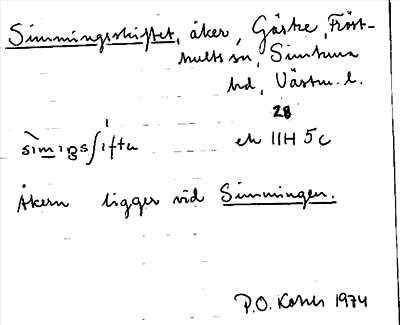 Simmingsskiftet, åker, Gäske, Fröst-
hults sn, Simtuna
hd, Västm. l.
28
sìmiŋsʃíftɛ ek 11H 5c
Åkern ligger vid Simmingen.
P.O. 1974